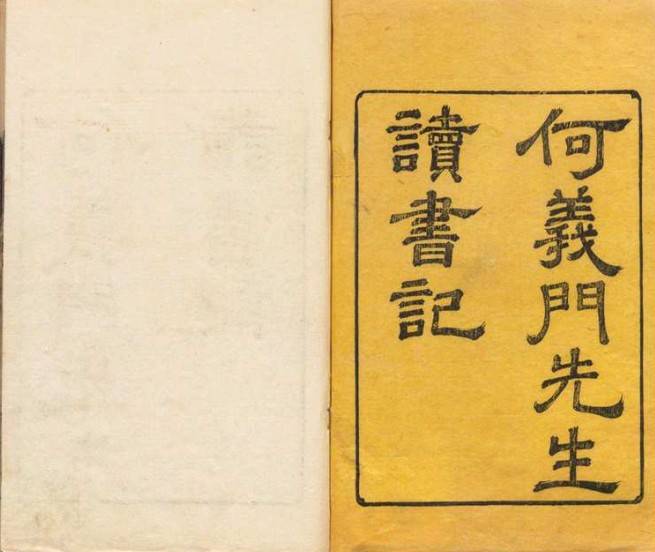 何義門先生
讀書記